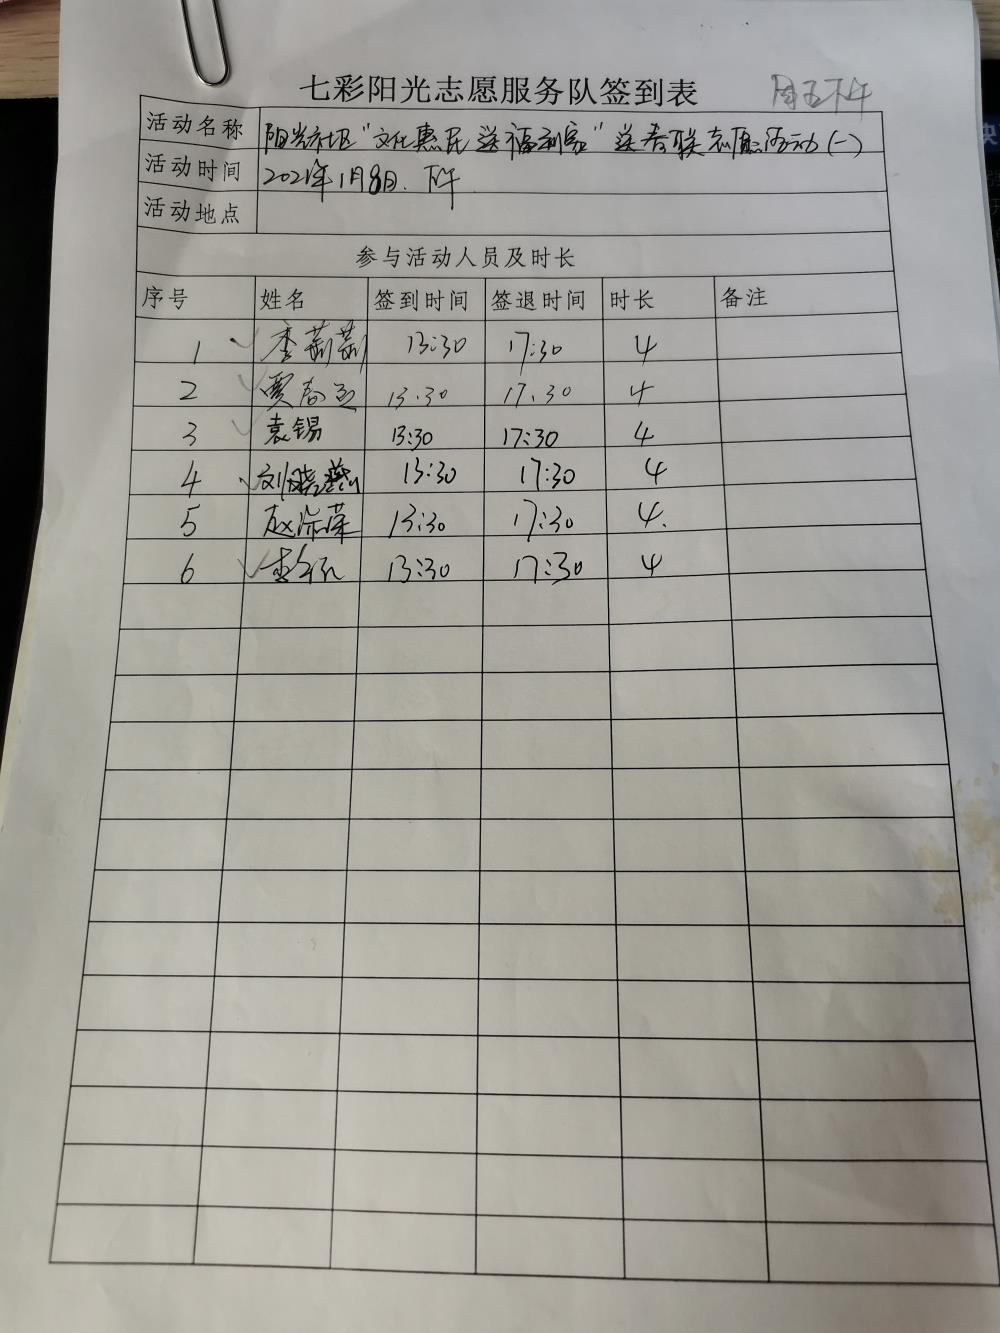 七彩阳光志愿服务队签到表 周五下午
活动名称 阳光社区“文化惠民 送福到家”送春联志愿活动(一)
活动时间 2021年1月8日. 下午
活动地点
参与活动人员及时长
序号 姓名 签到时间 签退时间 时长 备注
1 李莉莉 13:30 17:30 4
2 贾春玉 13.30 17.30 4
3 袁锡 13:30 17:30 4
4 刘晓燕 13:30 17:30 4
5 赵 荣 13:30 17:30 4.
6 李 13:30 17:30 4